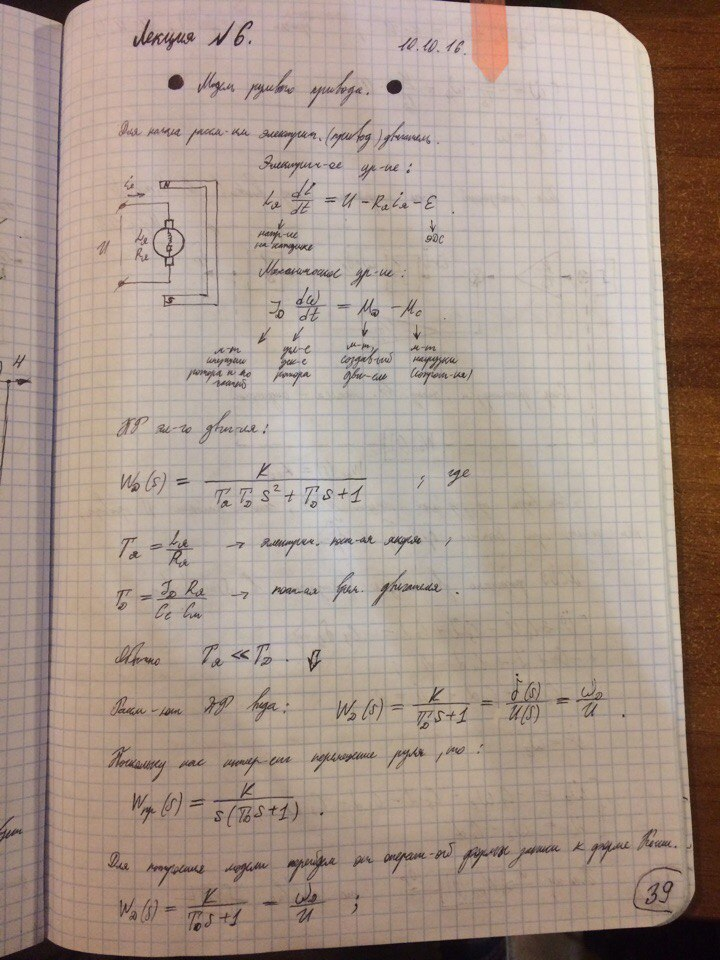 Лекция №6.
10.10.16.
Модель рулевого привода.
Для начала рассм-им электрич. (привод) двигатель.
Электрич-ое ур-ие:
iя
N
U
Lя
Rя
S
Lя di/dt = U - Rя iя - E.
напр-ие на катушке
ЭДС
Механическое ур-ие:
JD dω/dt = MD - Mc
м-т инерции ротора
ротора
м-т, создав-ый дви-лем
м-т нагрузки (сопрот-ия)
ПФ эл-го двиг-ля:
WD(s) = K / (Tя TD s² + TD s + 1) ; где
Tя = Lя/Rя → электрич. пост-ая якоря ;
TD = JD Rя / Ce Cм → пост-ая врем. двигателя.
Обычно Tя << TD. ⇓
Рассм-им ПФ вида: WD(s) = K/(TD s+1) = δ̇(s)/U(s) = ωD/U.
Поскольку нас интер-ет перемещение руля, то:
Wпр(s) = K / s(TD s+1).
Для построения модели перейдем от операт-ой формы записи к форме Коши.
WD(s) = K/(TD s+1) = ωD/U ;
39
H